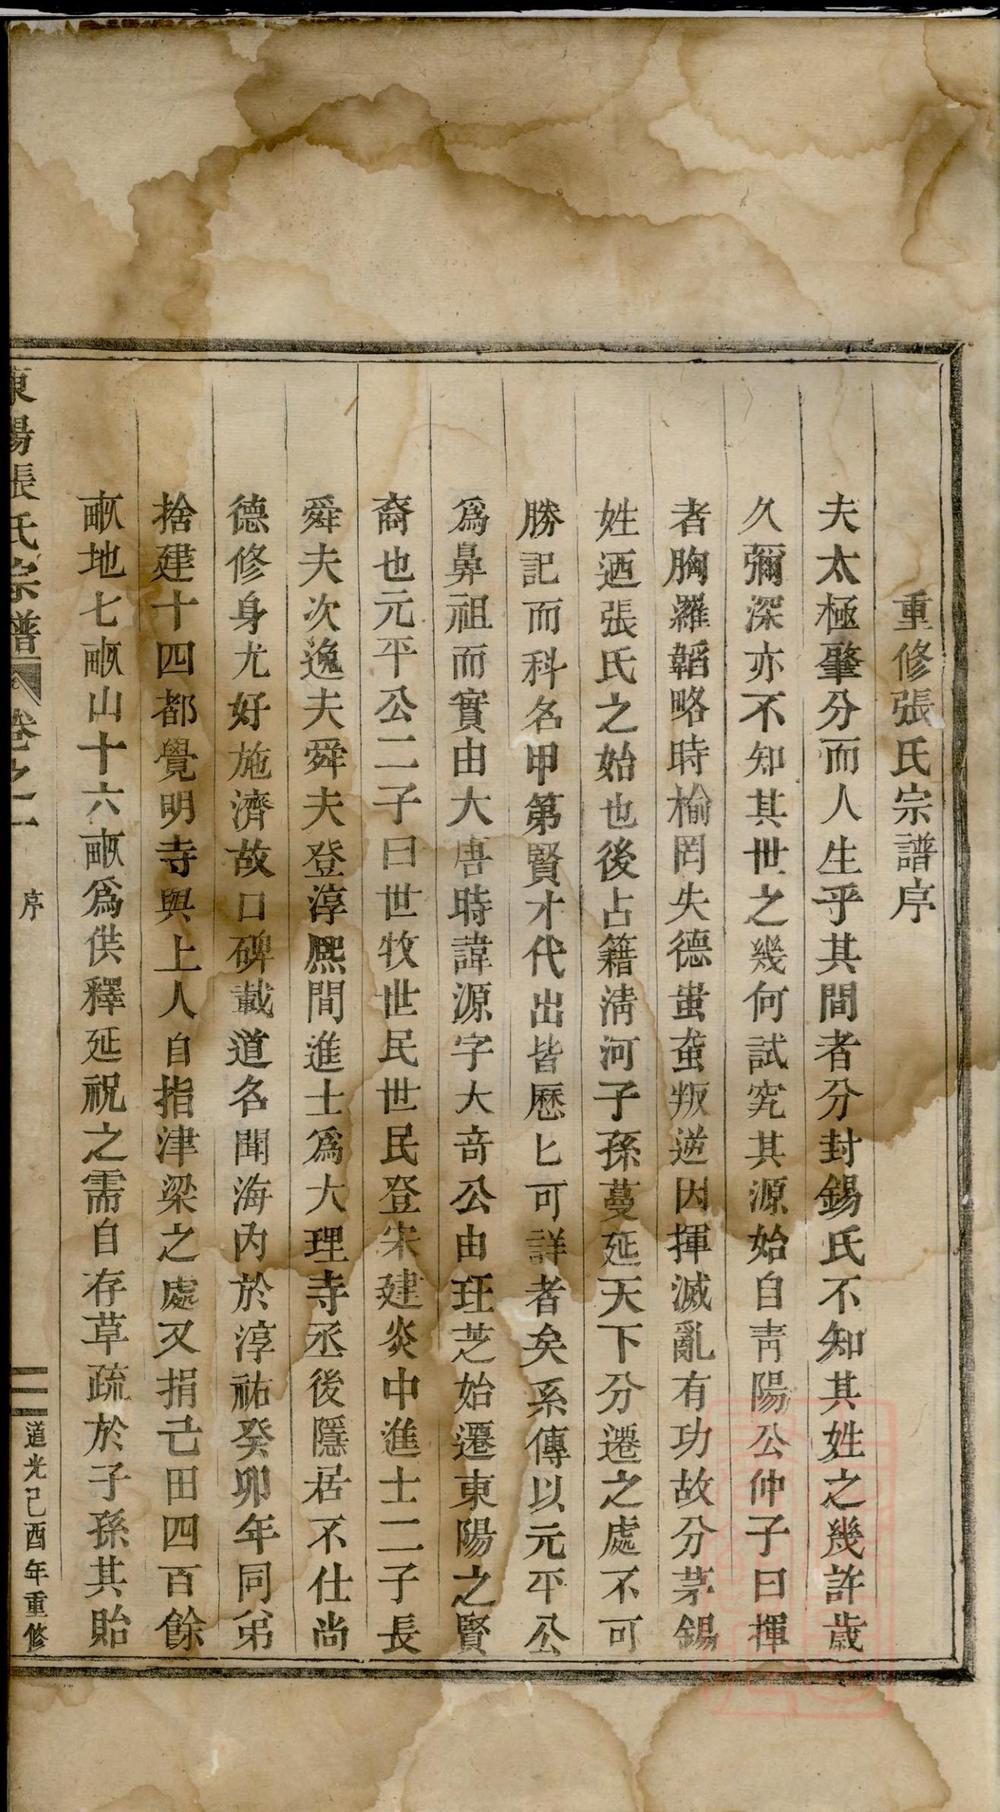 重修張氏宗譜序
夫太極肇分而人生乎其間者分封錫氏不知其姓之幾許歲
久彌深亦不知其世之幾何試究其源始自靑陽公仲子曰揮
者胸羅韜略時榆罔失德蚩蚩叛逆因揮滅亂有功故分茅錫
姓迺張氏之始也後占籍淸河子孫蔓延天下分遷之處不可
勝記而科名甲第賢才代出皆歷匕可詳者矣系傳以元平公
爲鼻祖而實由大唐時諱源字大奇公由玨芝始遷東陽之賢
裔也元平公二子曰世牧世民世民登宋建炎中進士二子長
舜夫次逸夫舜夫登淳熈間進士爲大理寺丞後隱居不仕尚
德修身尤好施濟故口碑載道名聞海內於淳祐癸卯年同弟
捨建十四都覺明寺與上人自指津梁之處又捐己田四百餘
畝地七畝山十六畝爲供釋延祝之需自存草疏於子孫其貽
東陽張氏宗譜 卷之一 序 二 道光己酉年重修